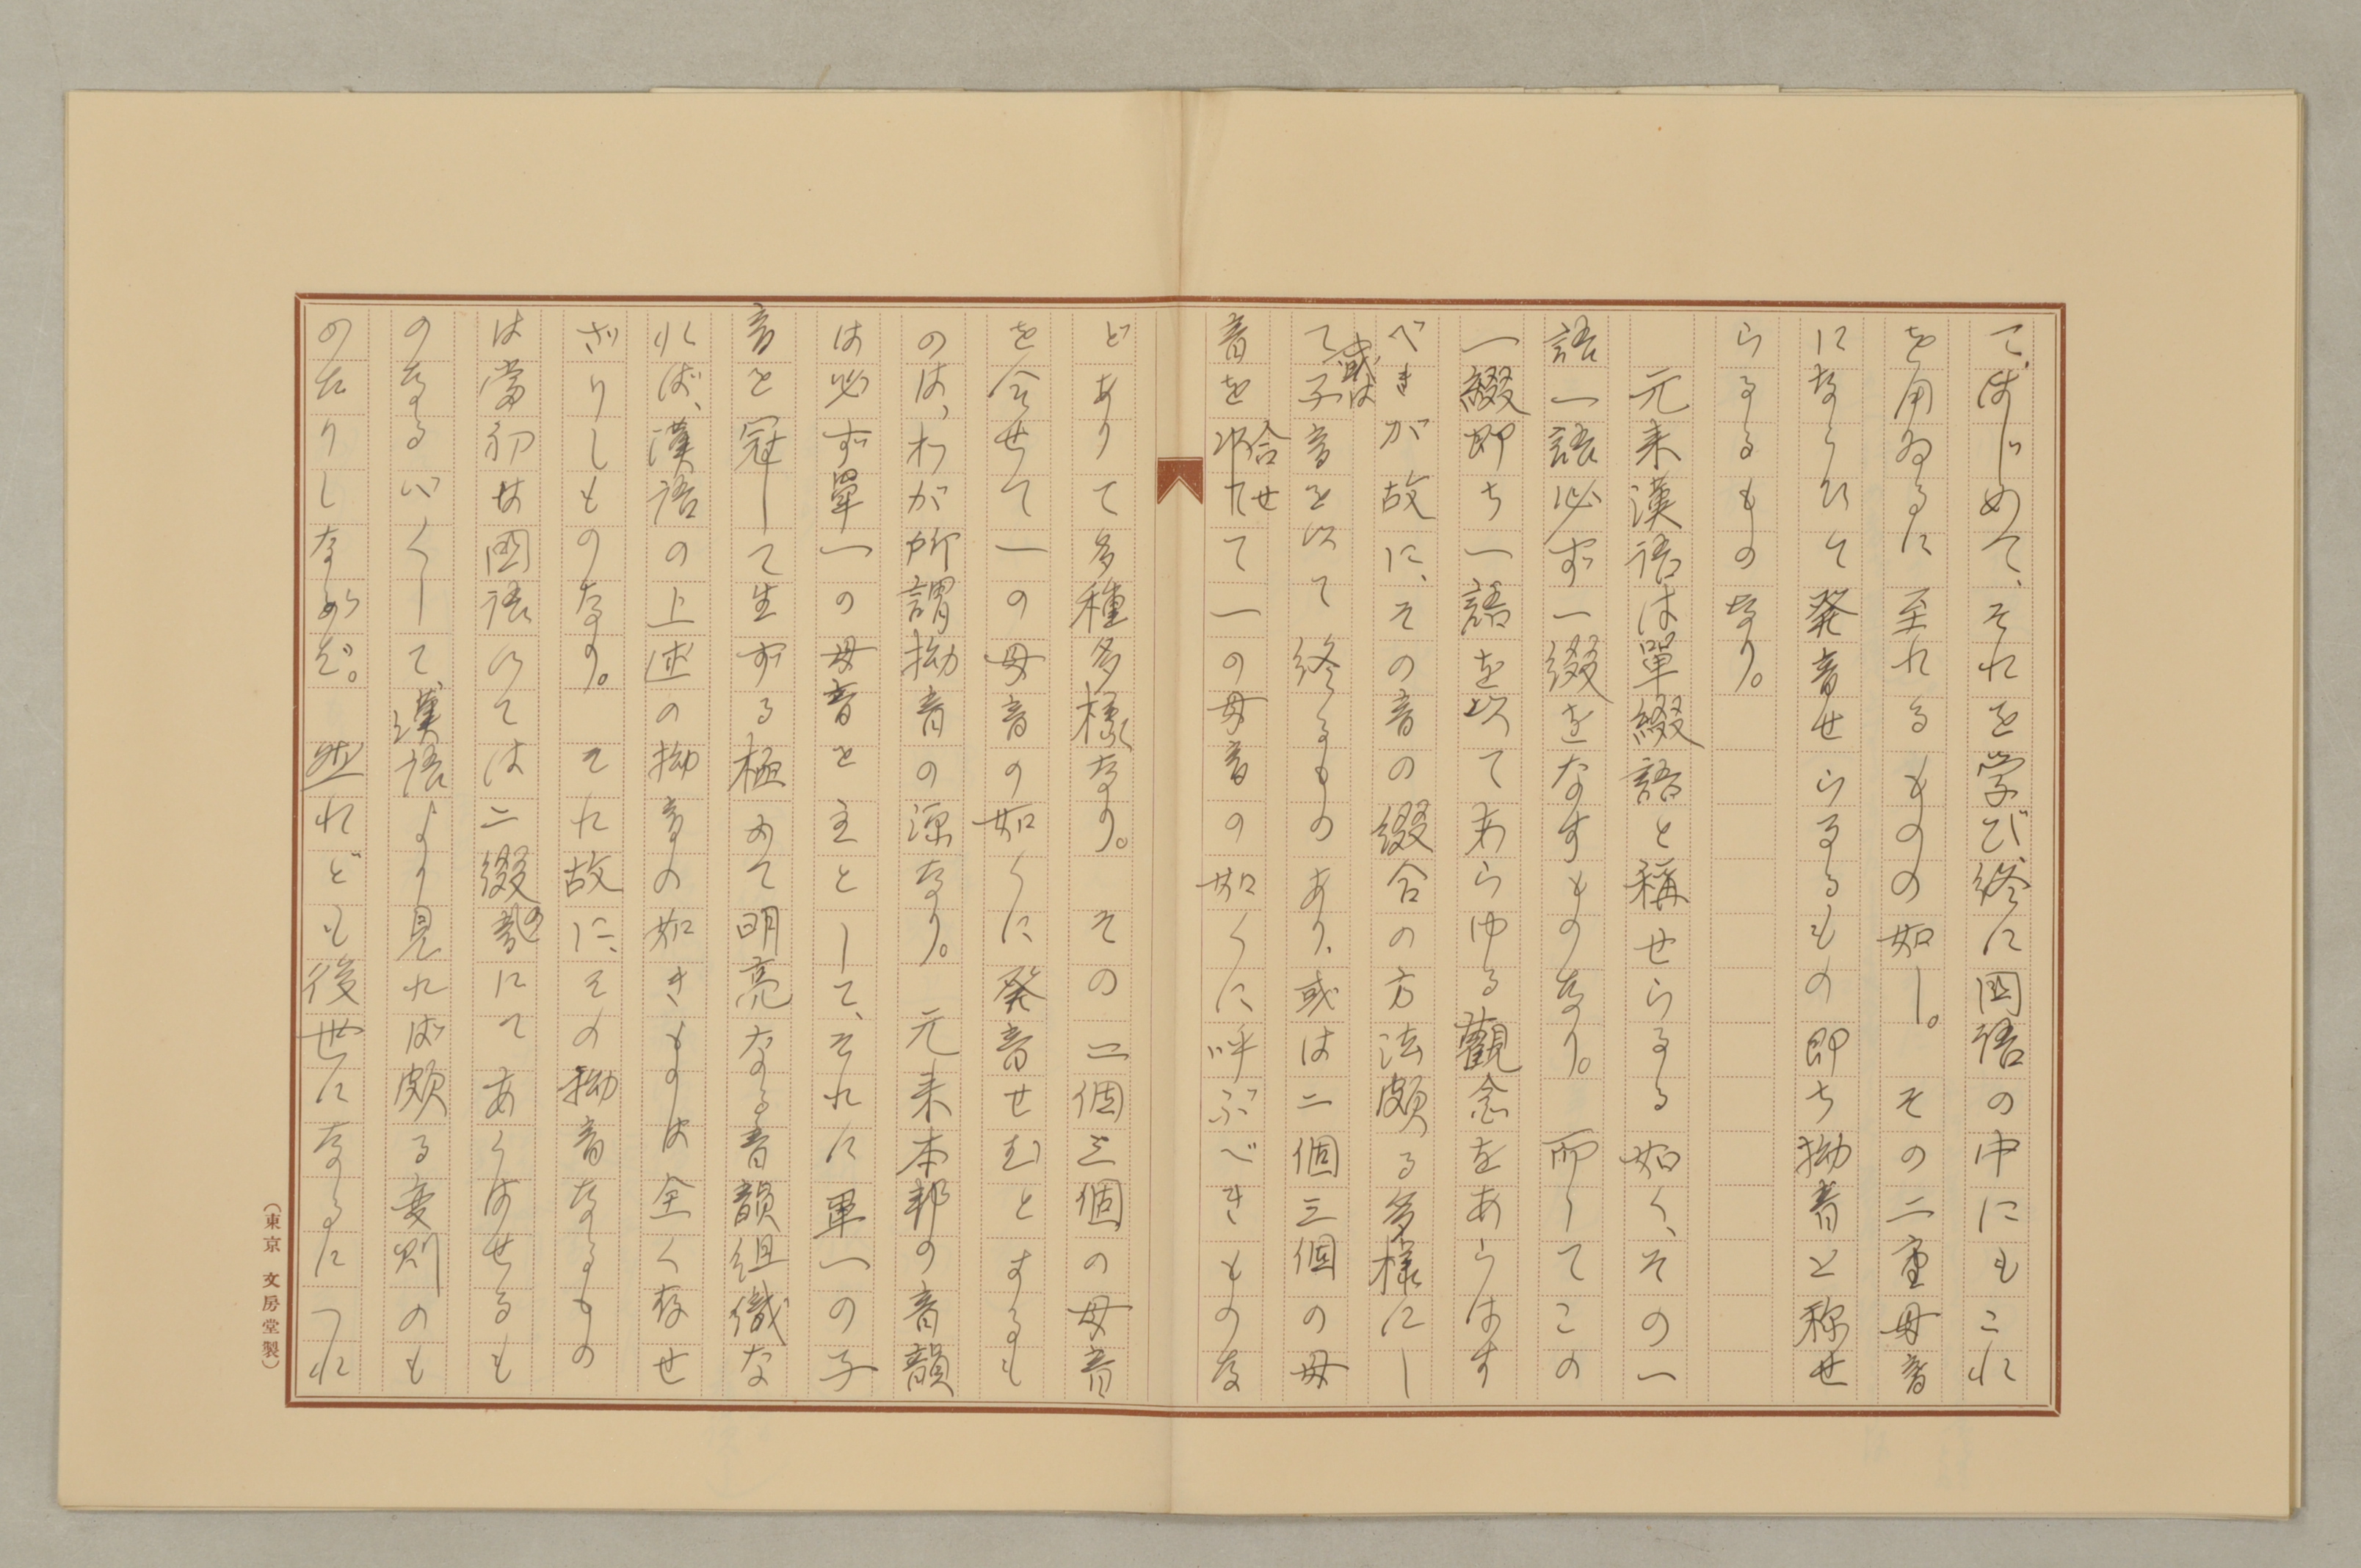 て、はじめて、それを学び、終に国語の中にもこれ
を用ゐるに至れるものの如し。その二重母音
にならひて発音せらるるもの即ち拗音と称せ
らるるものなり。
元来漢語は單綴語と稱せらるる如く、その一
語一語必ず一綴をなすものなり。而してこの
一綴即ち一語を以てあらゆる觀念をあらはす
べきが故に、その音の綴合の方法頗る多樣にし
て或は子音を以て終るものあり、或は二個三個の母
音を合せて一の母音の如くに呼ぶべきものな
どありて多種多樣なり。その二個三個の母音
を合せて一の母音の如くに発音せむとするも
のは、わが所謂拗音の源なり。元来本邦の音韻
は必ず單一の母音を主として、それに單一の子
音を冠して生ずる極めて明亮なる音韻組織な
れば、漢語の上述の拗音の如きものは全く存せ
ざりしものなり。それ故に、その拗音なるもの
は当初は国語にては二綴の音にてあらはせるも
のなるべくして、漢語より見れば頗る変則のも
のたりしならむ。然れども後世になるにつれ
（東京 文房堂製）